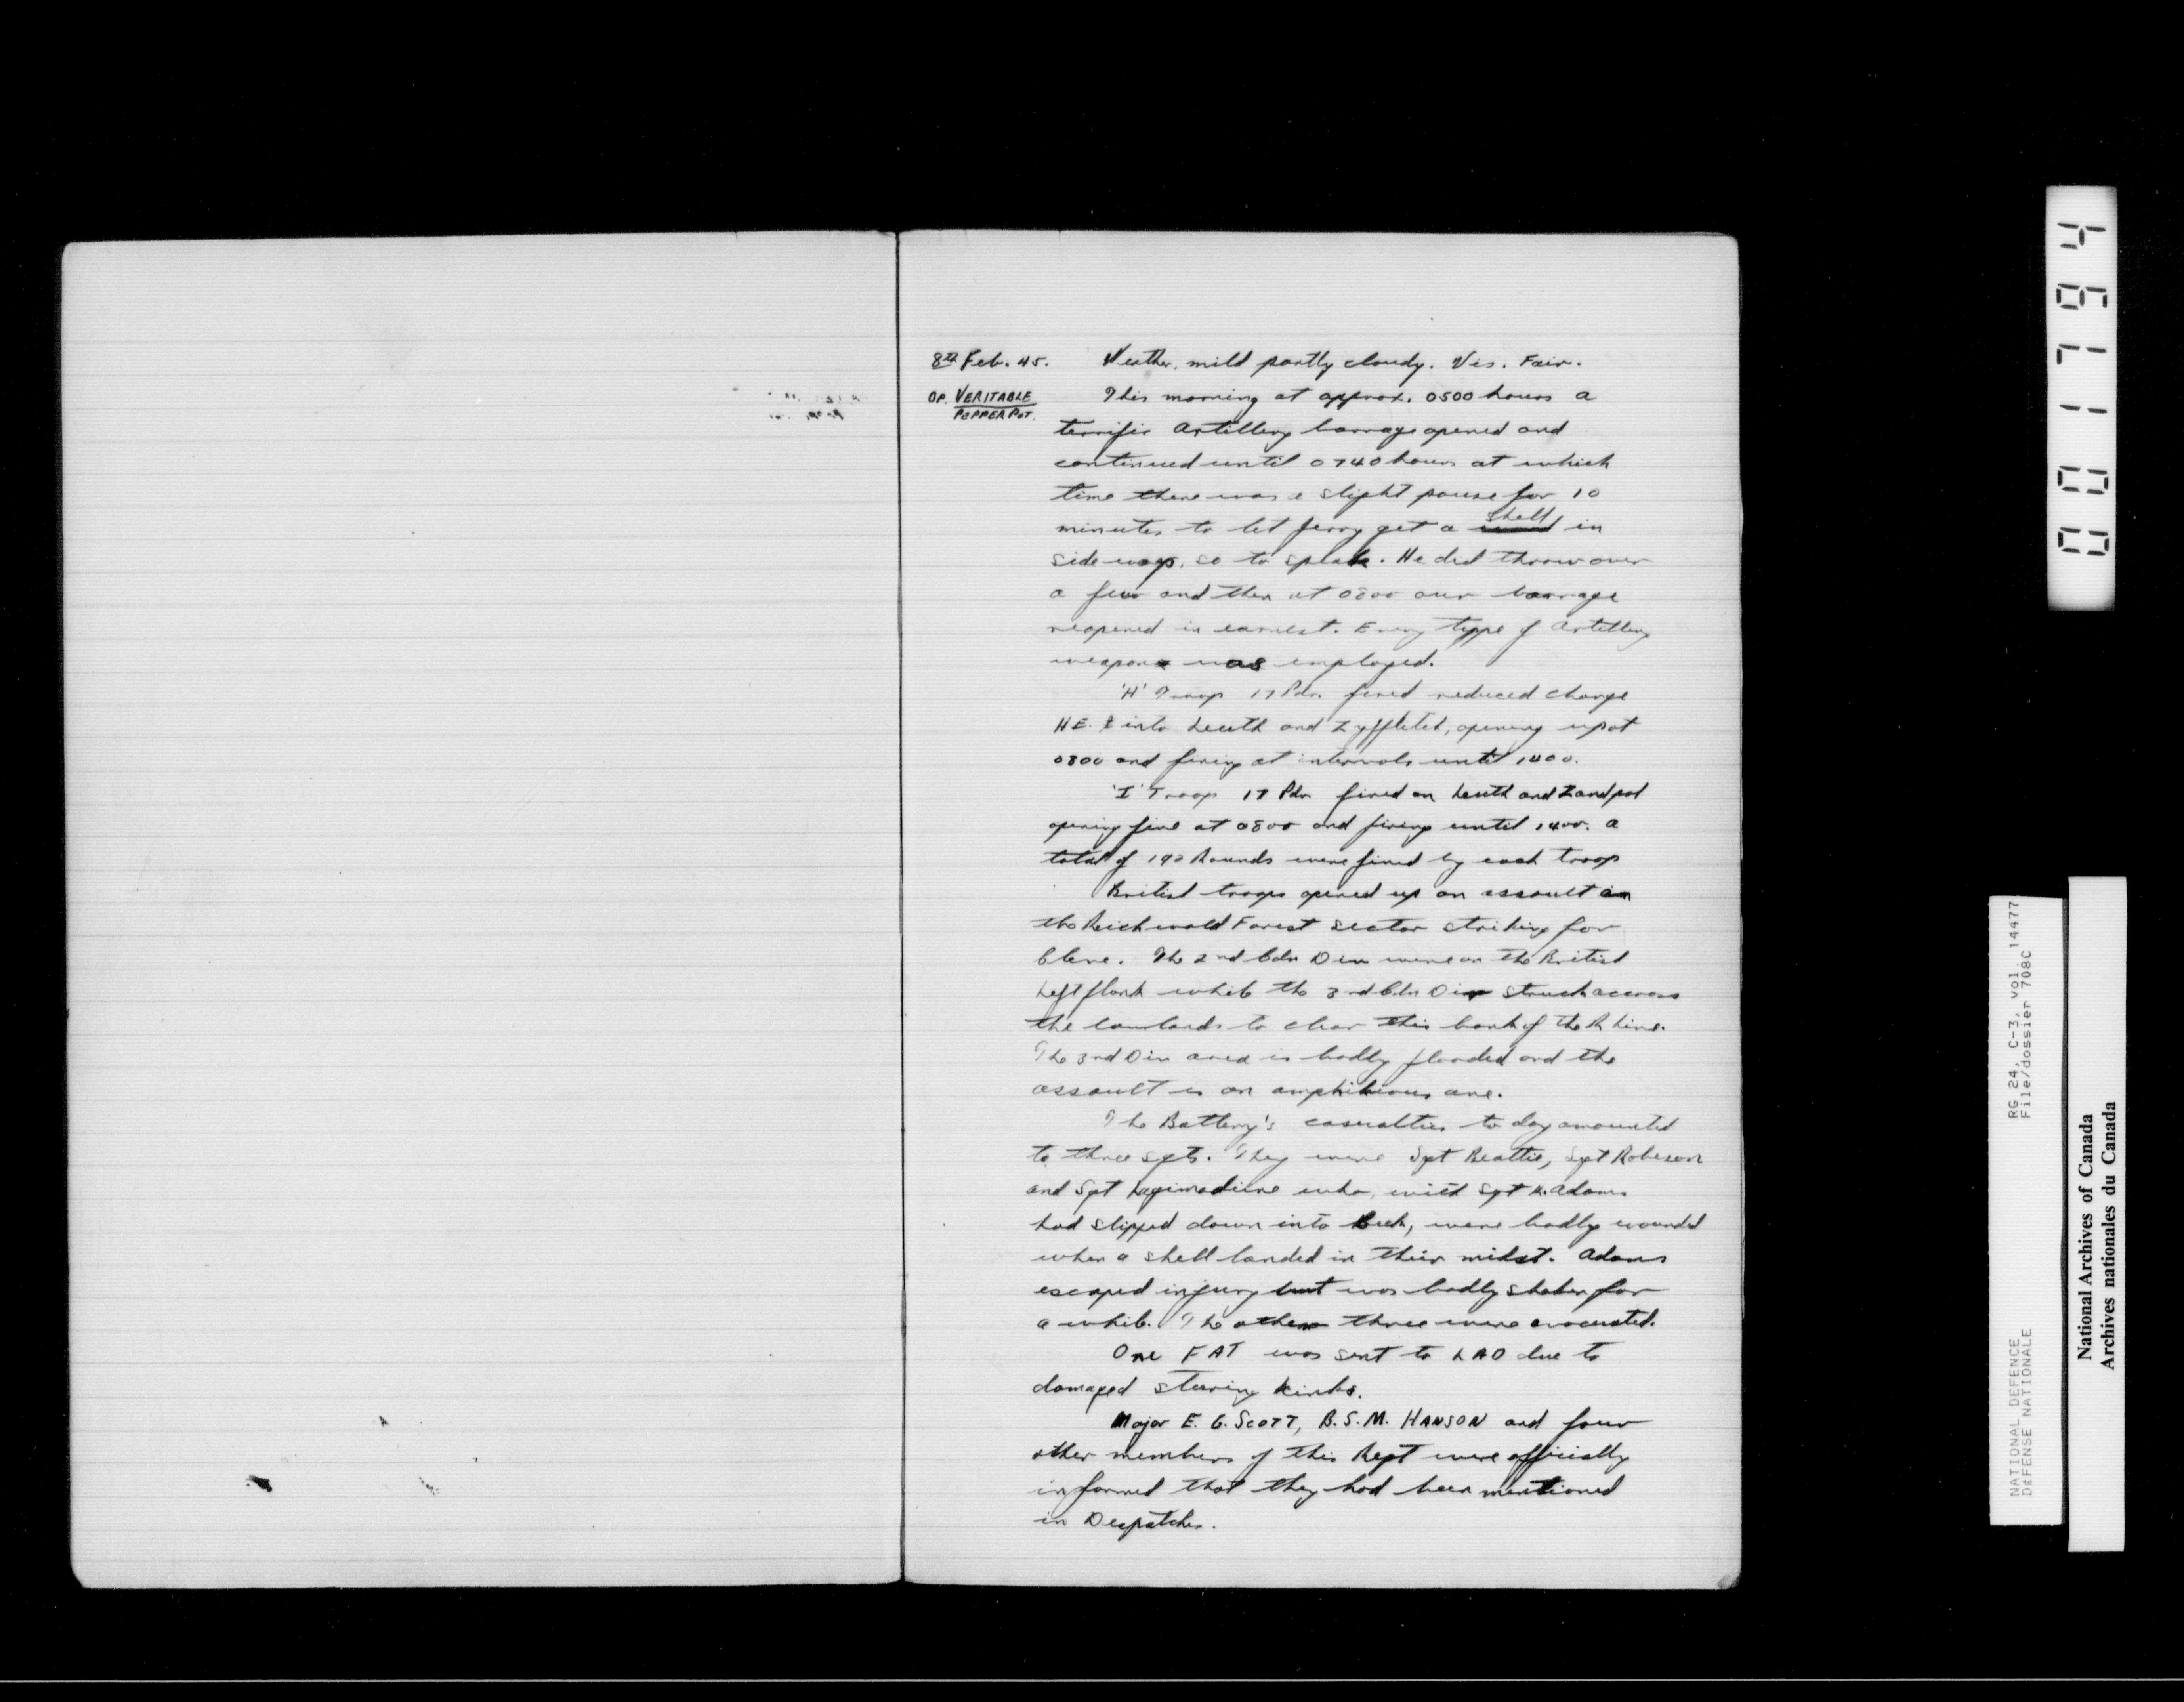 8th Feb. 45. Weather, mild partly cloudy. Vis. Fair.
OP. VERITABLE
PEPPERPOT.
This morning at approx. 0500 hours a
terrific Artillery barrage opened and
continued until 0740 hours at which
time there was a slight pause for 10
minutes to let Jerry get a shell in
sideways, so to speak. He did throw over
a few and then at 0800 our barrage
reopened in earnest. Every type of Artillery
weapon was employed.
'H' Troop 17 Pdr fired reduced charge
HE. into Leuth and Zyfflich, opening up at
0800 and firing at intervals until 1400.
'I' Troop 17 Pdr fired on Leuth and Zandpol
opening fire at 0800 and firing until 1400. a
total of 190 Rounds were fired by each troop
British troops opened up an assault in
the Reichwald Forest sector striking for
Cleve. The 2nd Cdn Div were on the British
Left flank while the 3rd Cdn Div struck accross
the lowlands to clear this bank of the Rhine.
The 3rd Div area is badly flooded and the
assault is an amphibious one.
The Battery's casualties to day amounted
to three sgts. They were Sgt Beattie, Sgt Robeson
and Sgt Lagimodiere who, with Sgt K. Adams
had slipped down into Beek, were badly wounded
when a shell landed in their midst. Adams
escaped injury but was badly shaken for
a while. The other three were evacuated.
One FAT was sent to LAD due to
damaged steering kinks.
Major E. G. SCOTT, B.S.M. HANSON and four
other members of this Regt were officially
informed that they had been mentioned
in Despatches.
0071794
RG 24, C-3, vol. 14477
File/dossier 708C
NATIONAL DEFENCE
DÉFENSE NATIONALE
National Archives of Canada
Archives nationales du Canada